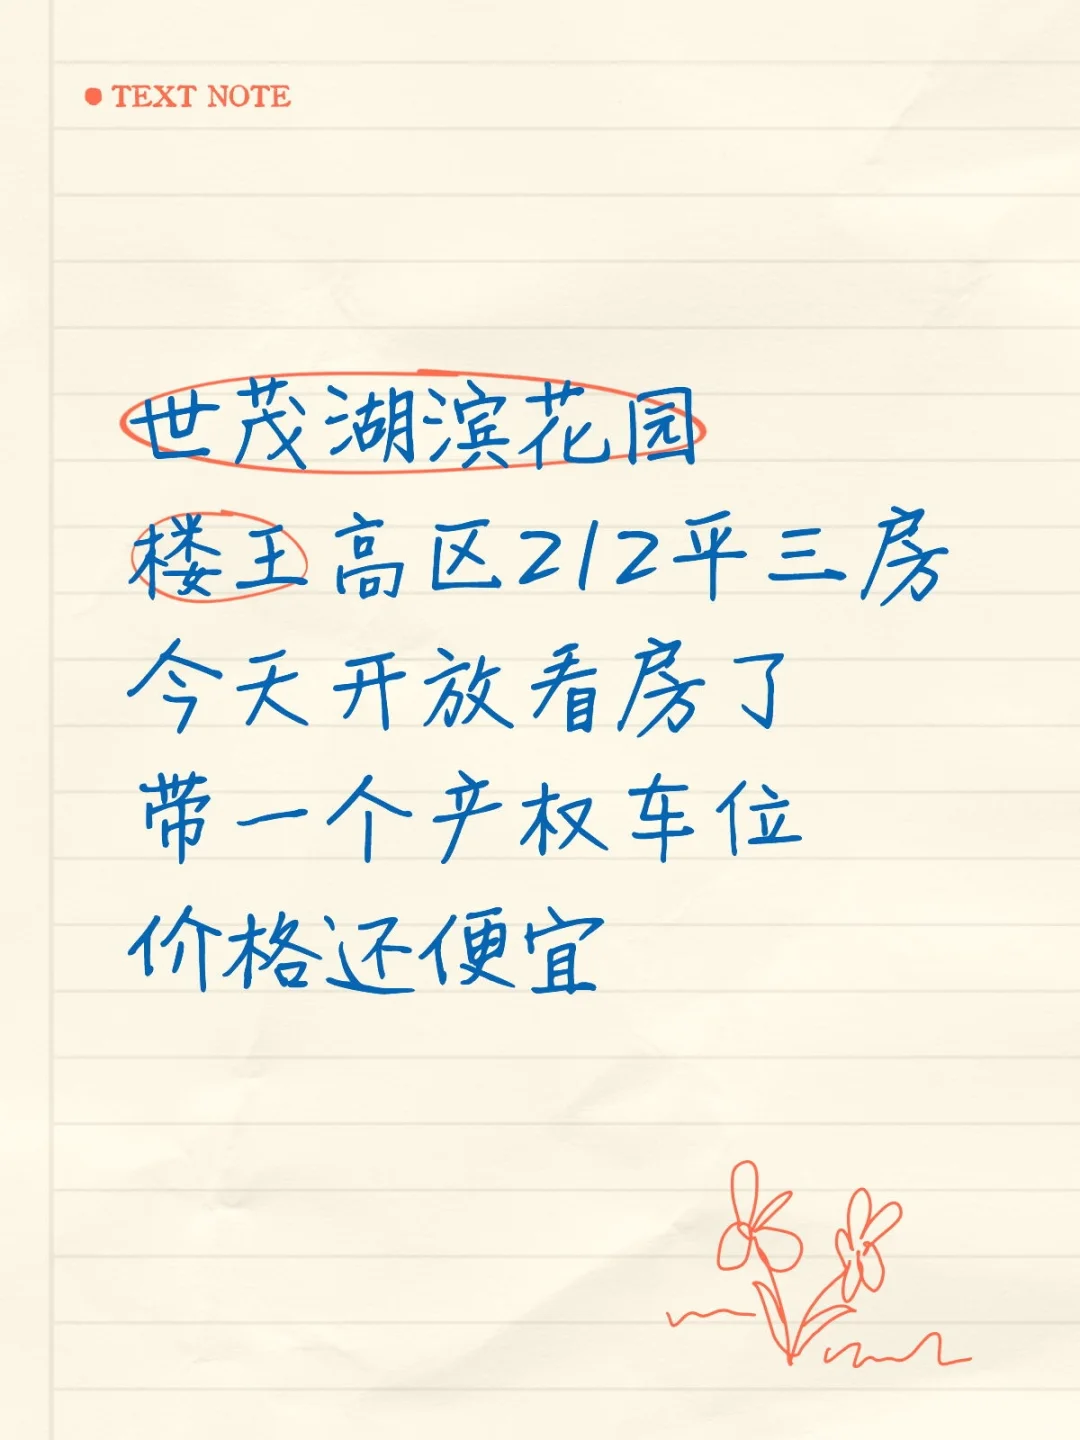 TEXT NOTE
世茂湖滨花园
楼王高区212平三房
今天开放看房了
带一个产权车位
价格还便宜